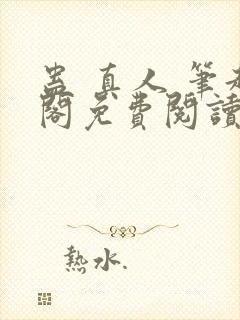 蛊真人 筆趣
閣免費閱讀
熱水.